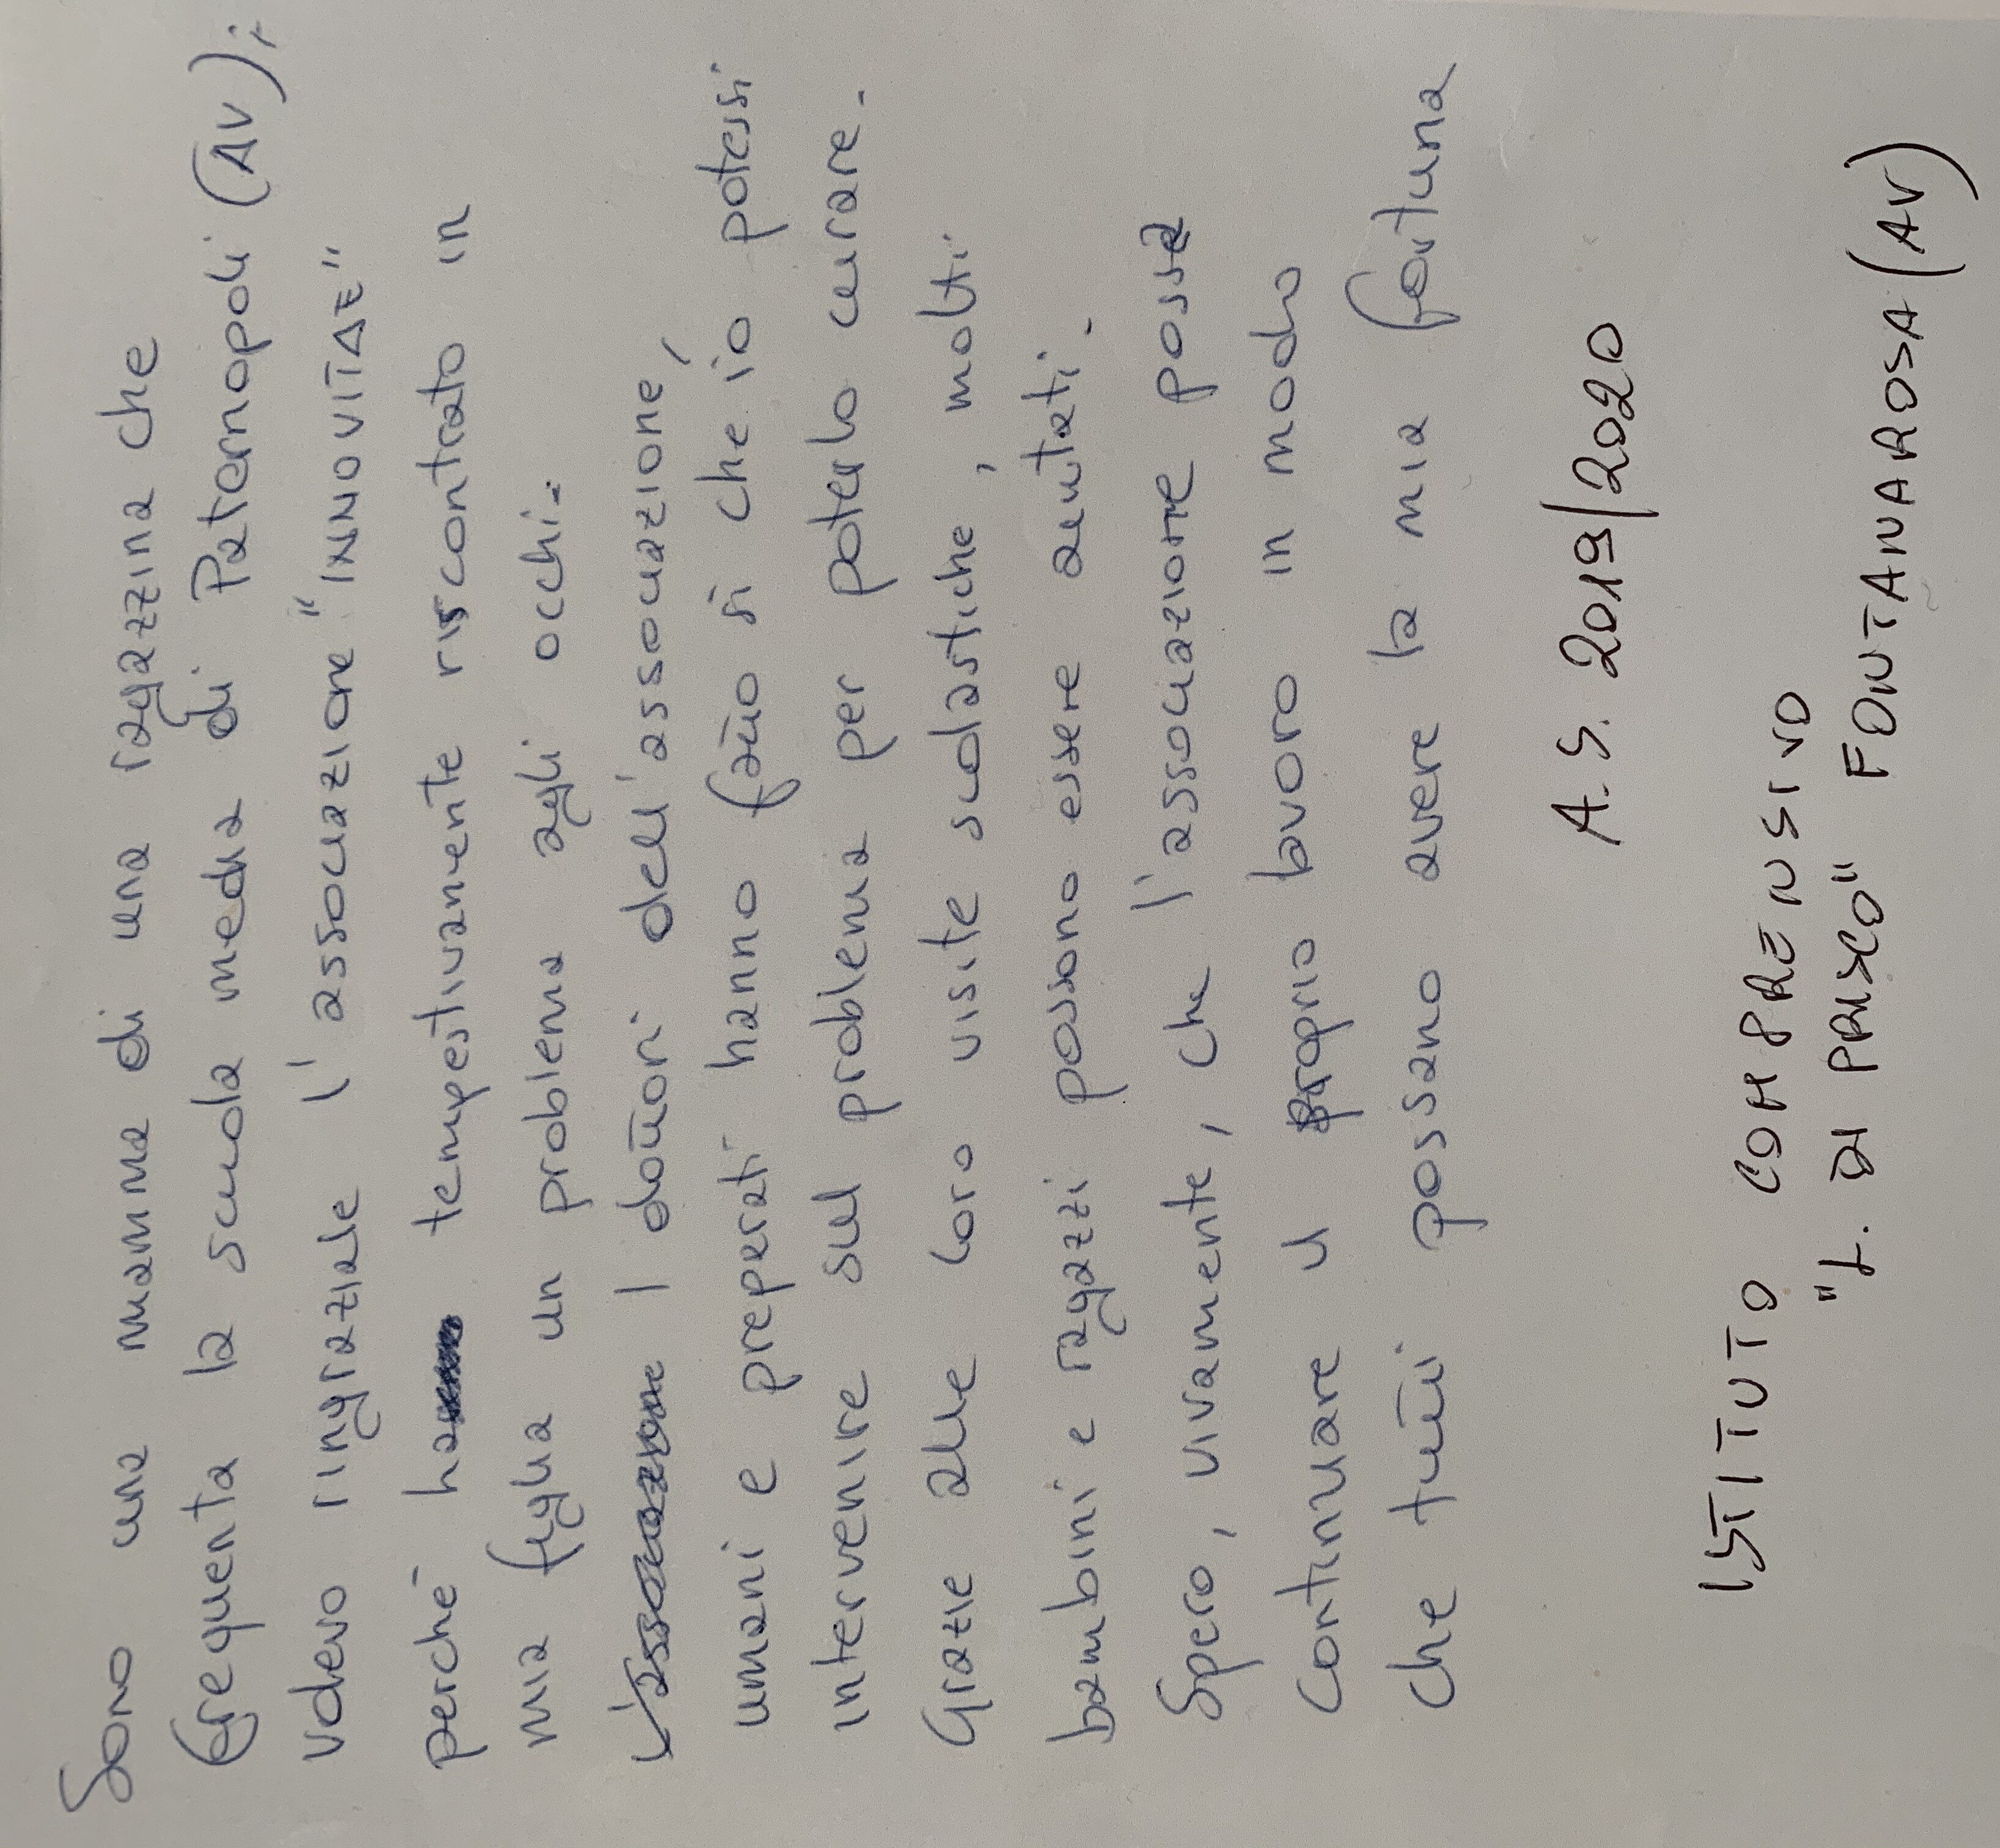 Sono una mamma di una ragazzina che
frequenta la scuola media di Paternopoli (AV);
volevo ringraziale l'associazione "INNOVITAE"
perché ha tempestivamente riscontrato in
mia figlia un problema agli occhi.
I dottori dell'associazione,
umani e preperati hanno fatto sì che io potessi
intervenire sul problema per poterlo curare.
Grazie alle loro visite scolastiche, molti
bambini e ragazzi possono essere aiutati.
Spero, vivamente, che l'associazione possa
continuare il proprio lavoro in modo
che tutti possano avere la mia fortuna
A.S. 2019/2020
ISTITUTO COMPRENSIVO
"L. DI PRISCO" FONTANAROSA (AV)